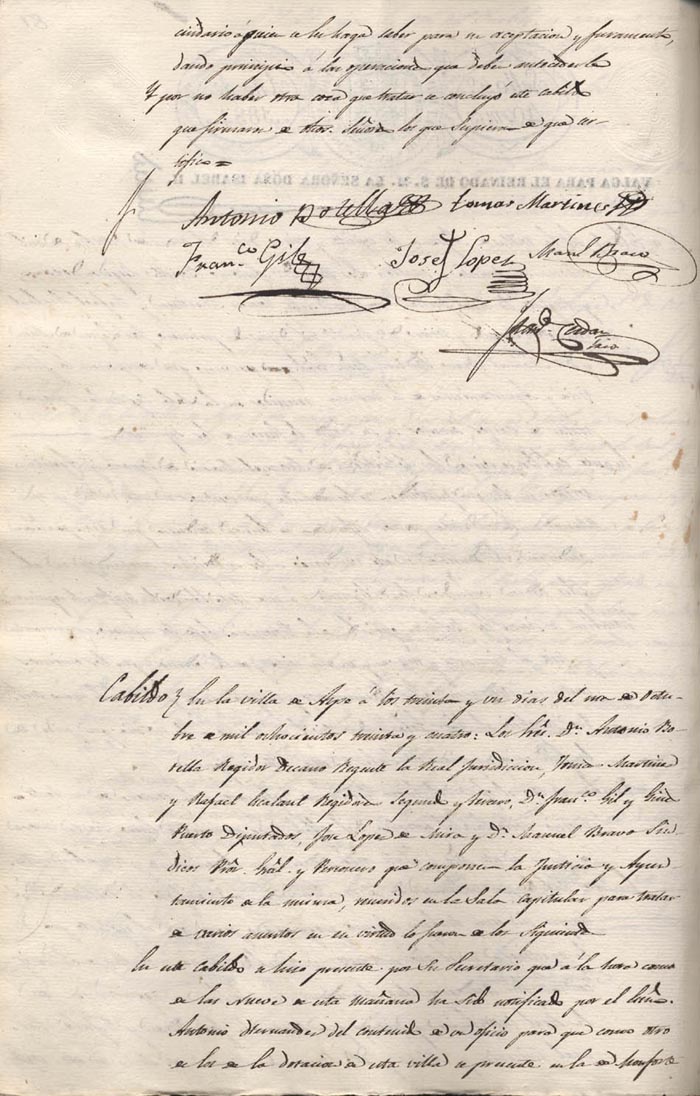 cindario á quien se le haga saber para su aceptacion y juramento,
dando principio á las operaciones que deben antecederle
Y por no haber otra cosa que tratar se concluyó este cabildo
que firmaron de dhos. Señores los que supieron de que cer-
tifico =
VALGA PARA EL REINADO DE S. M. LA SEÑORA DOÑA ISABEL II.
Antonio Botella Tomas Martines
Fran.co Gil Josef Lopez Man.l Bravo
Cerdan
Cabildo } En la villa de Aspe á los treinta y un dias del mes de Octu-
bre de mil ochocientos treinta y cuatro: Los Sres. Dn. Antonio Bo-
tella Regidor Decano Regente la Real Jurisdiccion, Tomas Martinez
y Rafael Alcalant Regidores Segundo y tercero, Dn. Fran.co Gil y Gines
Puerto Diputados, Jose Lopez de Mira y Dn. Manuel Bravo Sin-
dicos Pror. Gral. y Personero que componen la Justicia y Ayun-
tamiento de la misma, reunidos en la Sala capitular para tratar
de varios asuntos en su virtud lo fueron de los siguientes
En este Cabildo se hizo presente por Su Secretario que á la hora como
de las Nueve de esta mañana ha sido notificado por el Essno.
Antonio Hernandez del contenido de un oficio para que como otro
de los de la dotacion de esta villa se presente en la de Monforte